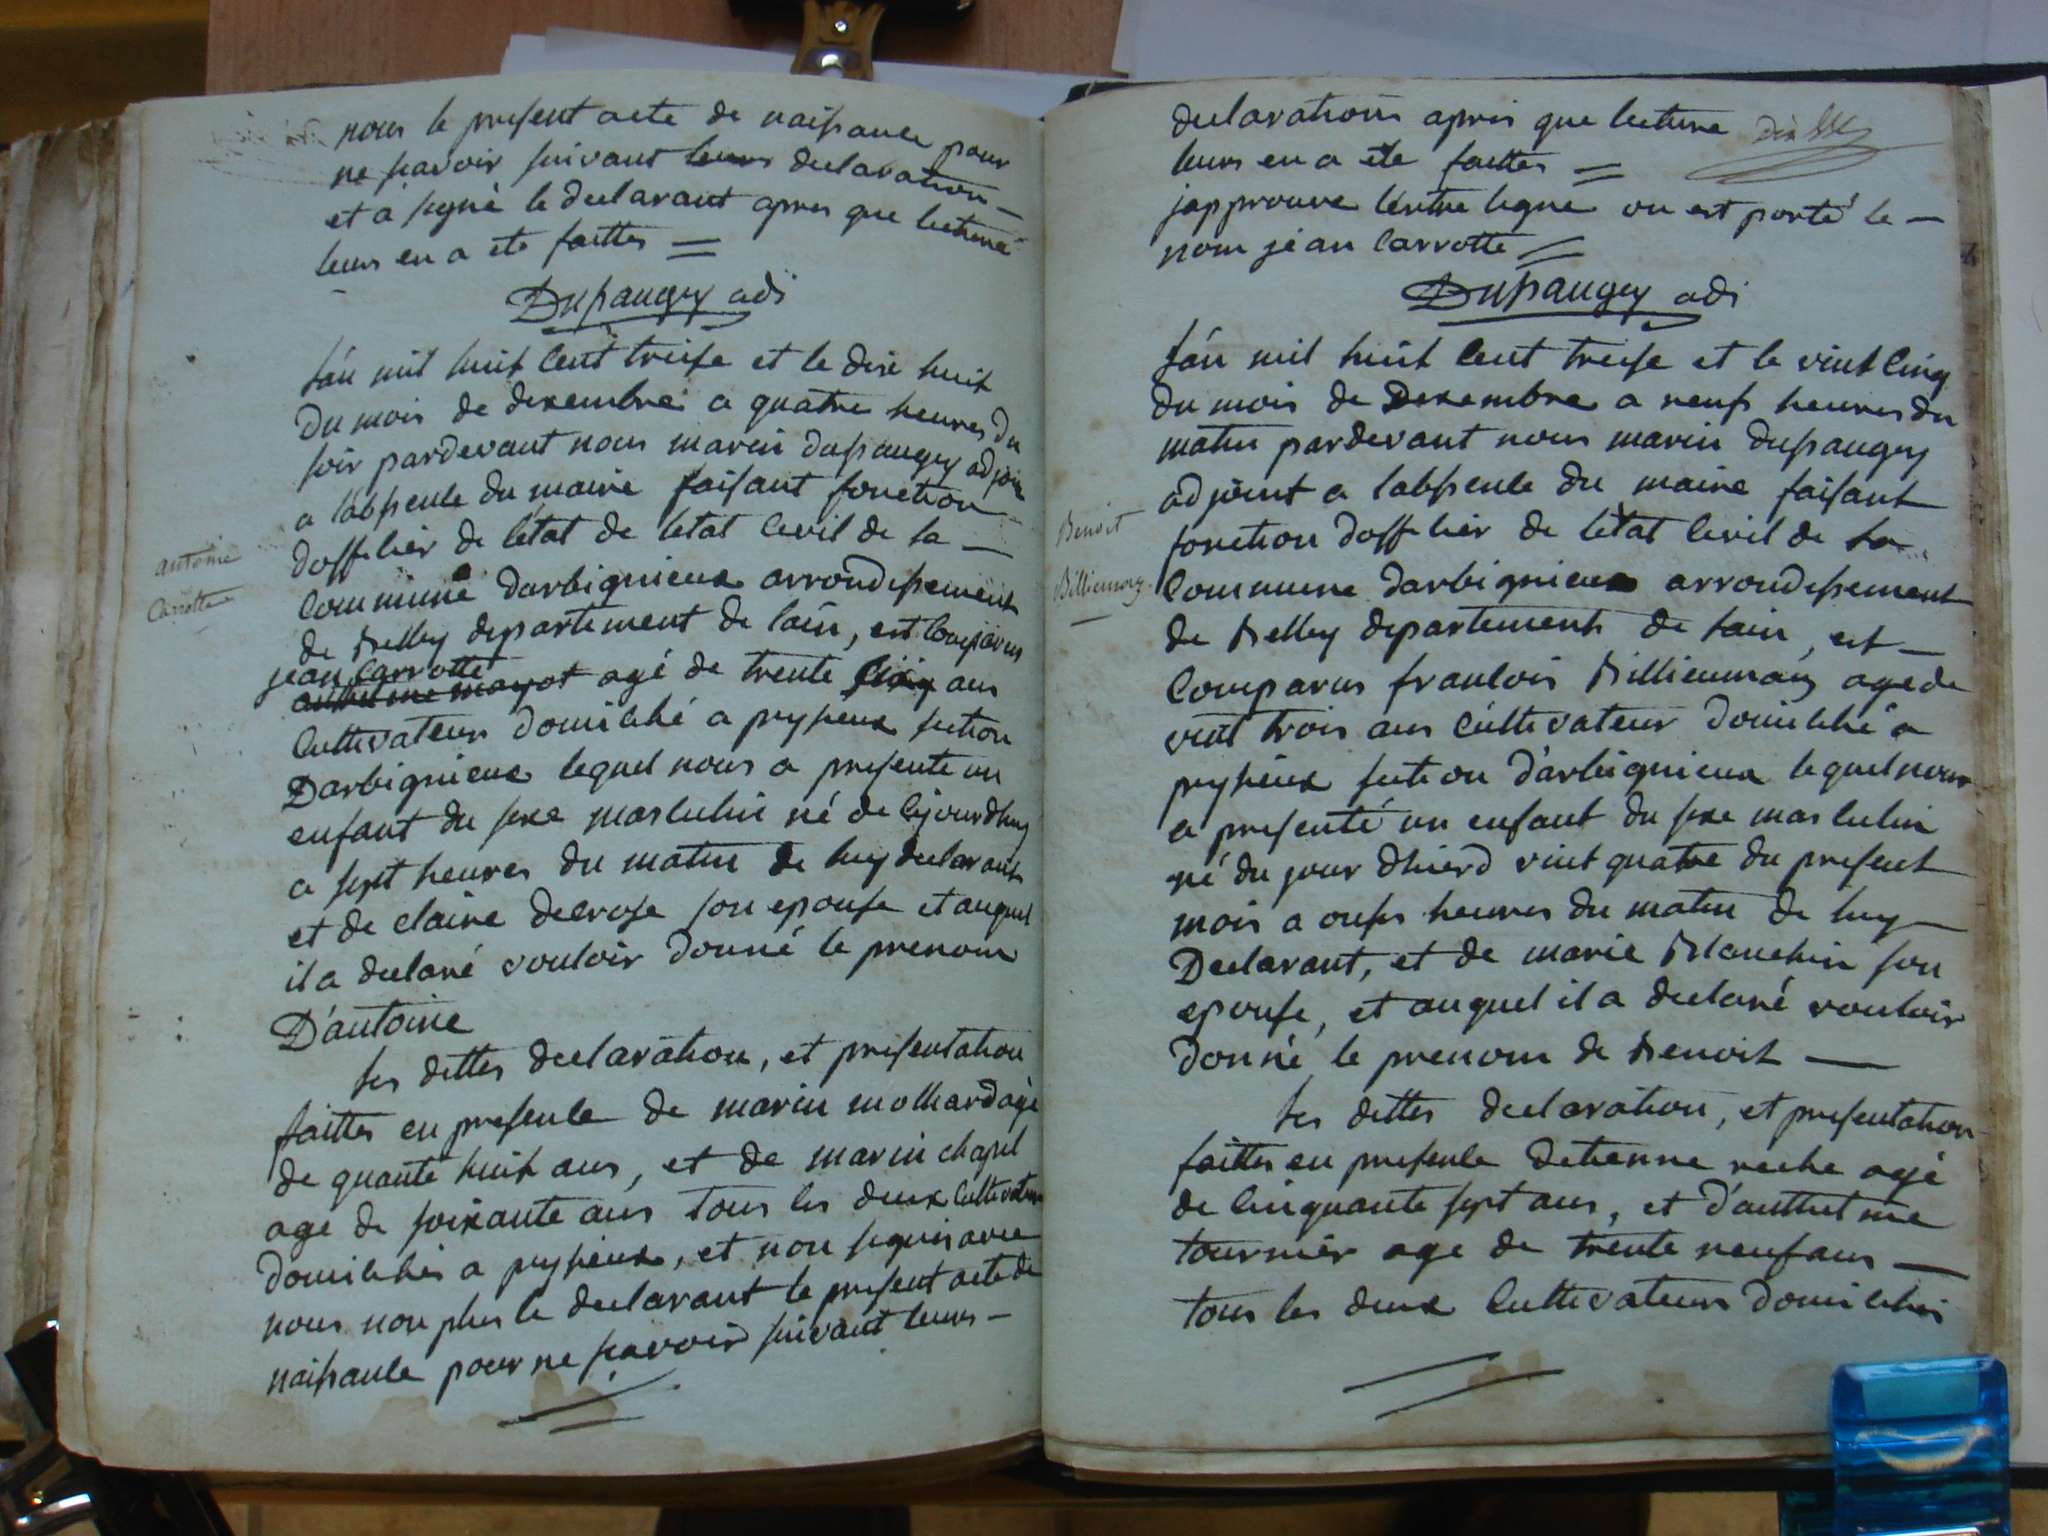 nous le present acte de naissance pour
ne scavoir suivant leurs declaration –
et a signé le declarant apres que lecture
leurs en a ete faittes =
Dupaugey adj
Antoine
Carrotte
l'an mil huit cent treise et le dix huit
du mois de dexembre a quatre heures du
soir pardevant nous marin dupaugey adjoin
a l'absence du maire faisant fonction
d'officier de l'état de letat civil de la —
commune darbignieux arrondissement
de Belley departement de lain, est comparus
jean Carrotte
anthelme mayot agé de trente cinq ans
cultivateur domicilié a peysieux section
Darbignieux lequel nous a presente un
enfant du sexe masculin né de cejourdhuy
a sept heures du matin de luy declarant
et de claire decrose son epouse et auquel
il a declaré vouloir donné le prenom
D'antoine
les dittes declaration, et presentation
faittes en presence de marin molliard agé
de quante huit ans, et de marin chapel
age de soixante ans tous les deux cultivateurs
domiciliés a peysieux, et non signés avec
nous non plus le declarant le present acte de
naissance pour ne scavoir suivant leurs –
declarations apres que lecture
leurs en a ete faittes =
japprouve lentre ligne ou est porté le —
nom jean Carrotte =
Dupaugey adj
Benoit
Billiemaz
l'an mil huit cent treise et le vint cinq
du mois de Dexembre a neufs heures du
matin pardevant nous marin dupaugey
adjoint a labsence du maire faisant
fonction d'officier de l'état civil de la
commune darbignieux arrondissement
de Belley departement de lain, est —
comparus francois Billiemaz age de
vint trois ans cultivateur domicilié a
peysieux section d'arbignieux lequel nous
a presenté un enfant du sexe masculin
né du jour dhierd vint quatre du present
mois a onses heures du matin de luy —
Declarant, et de marie Blanchin son
epouse, et auquel il a declaré vouloir
donné le prenom de Benoit —
les dittes declaration, et presentation
faittes en presence detienne reche agé
de cinquante sept ans, et d'anthelme
tournier age de trente neuf ans —
tous les deux cultivateurs domiciliés